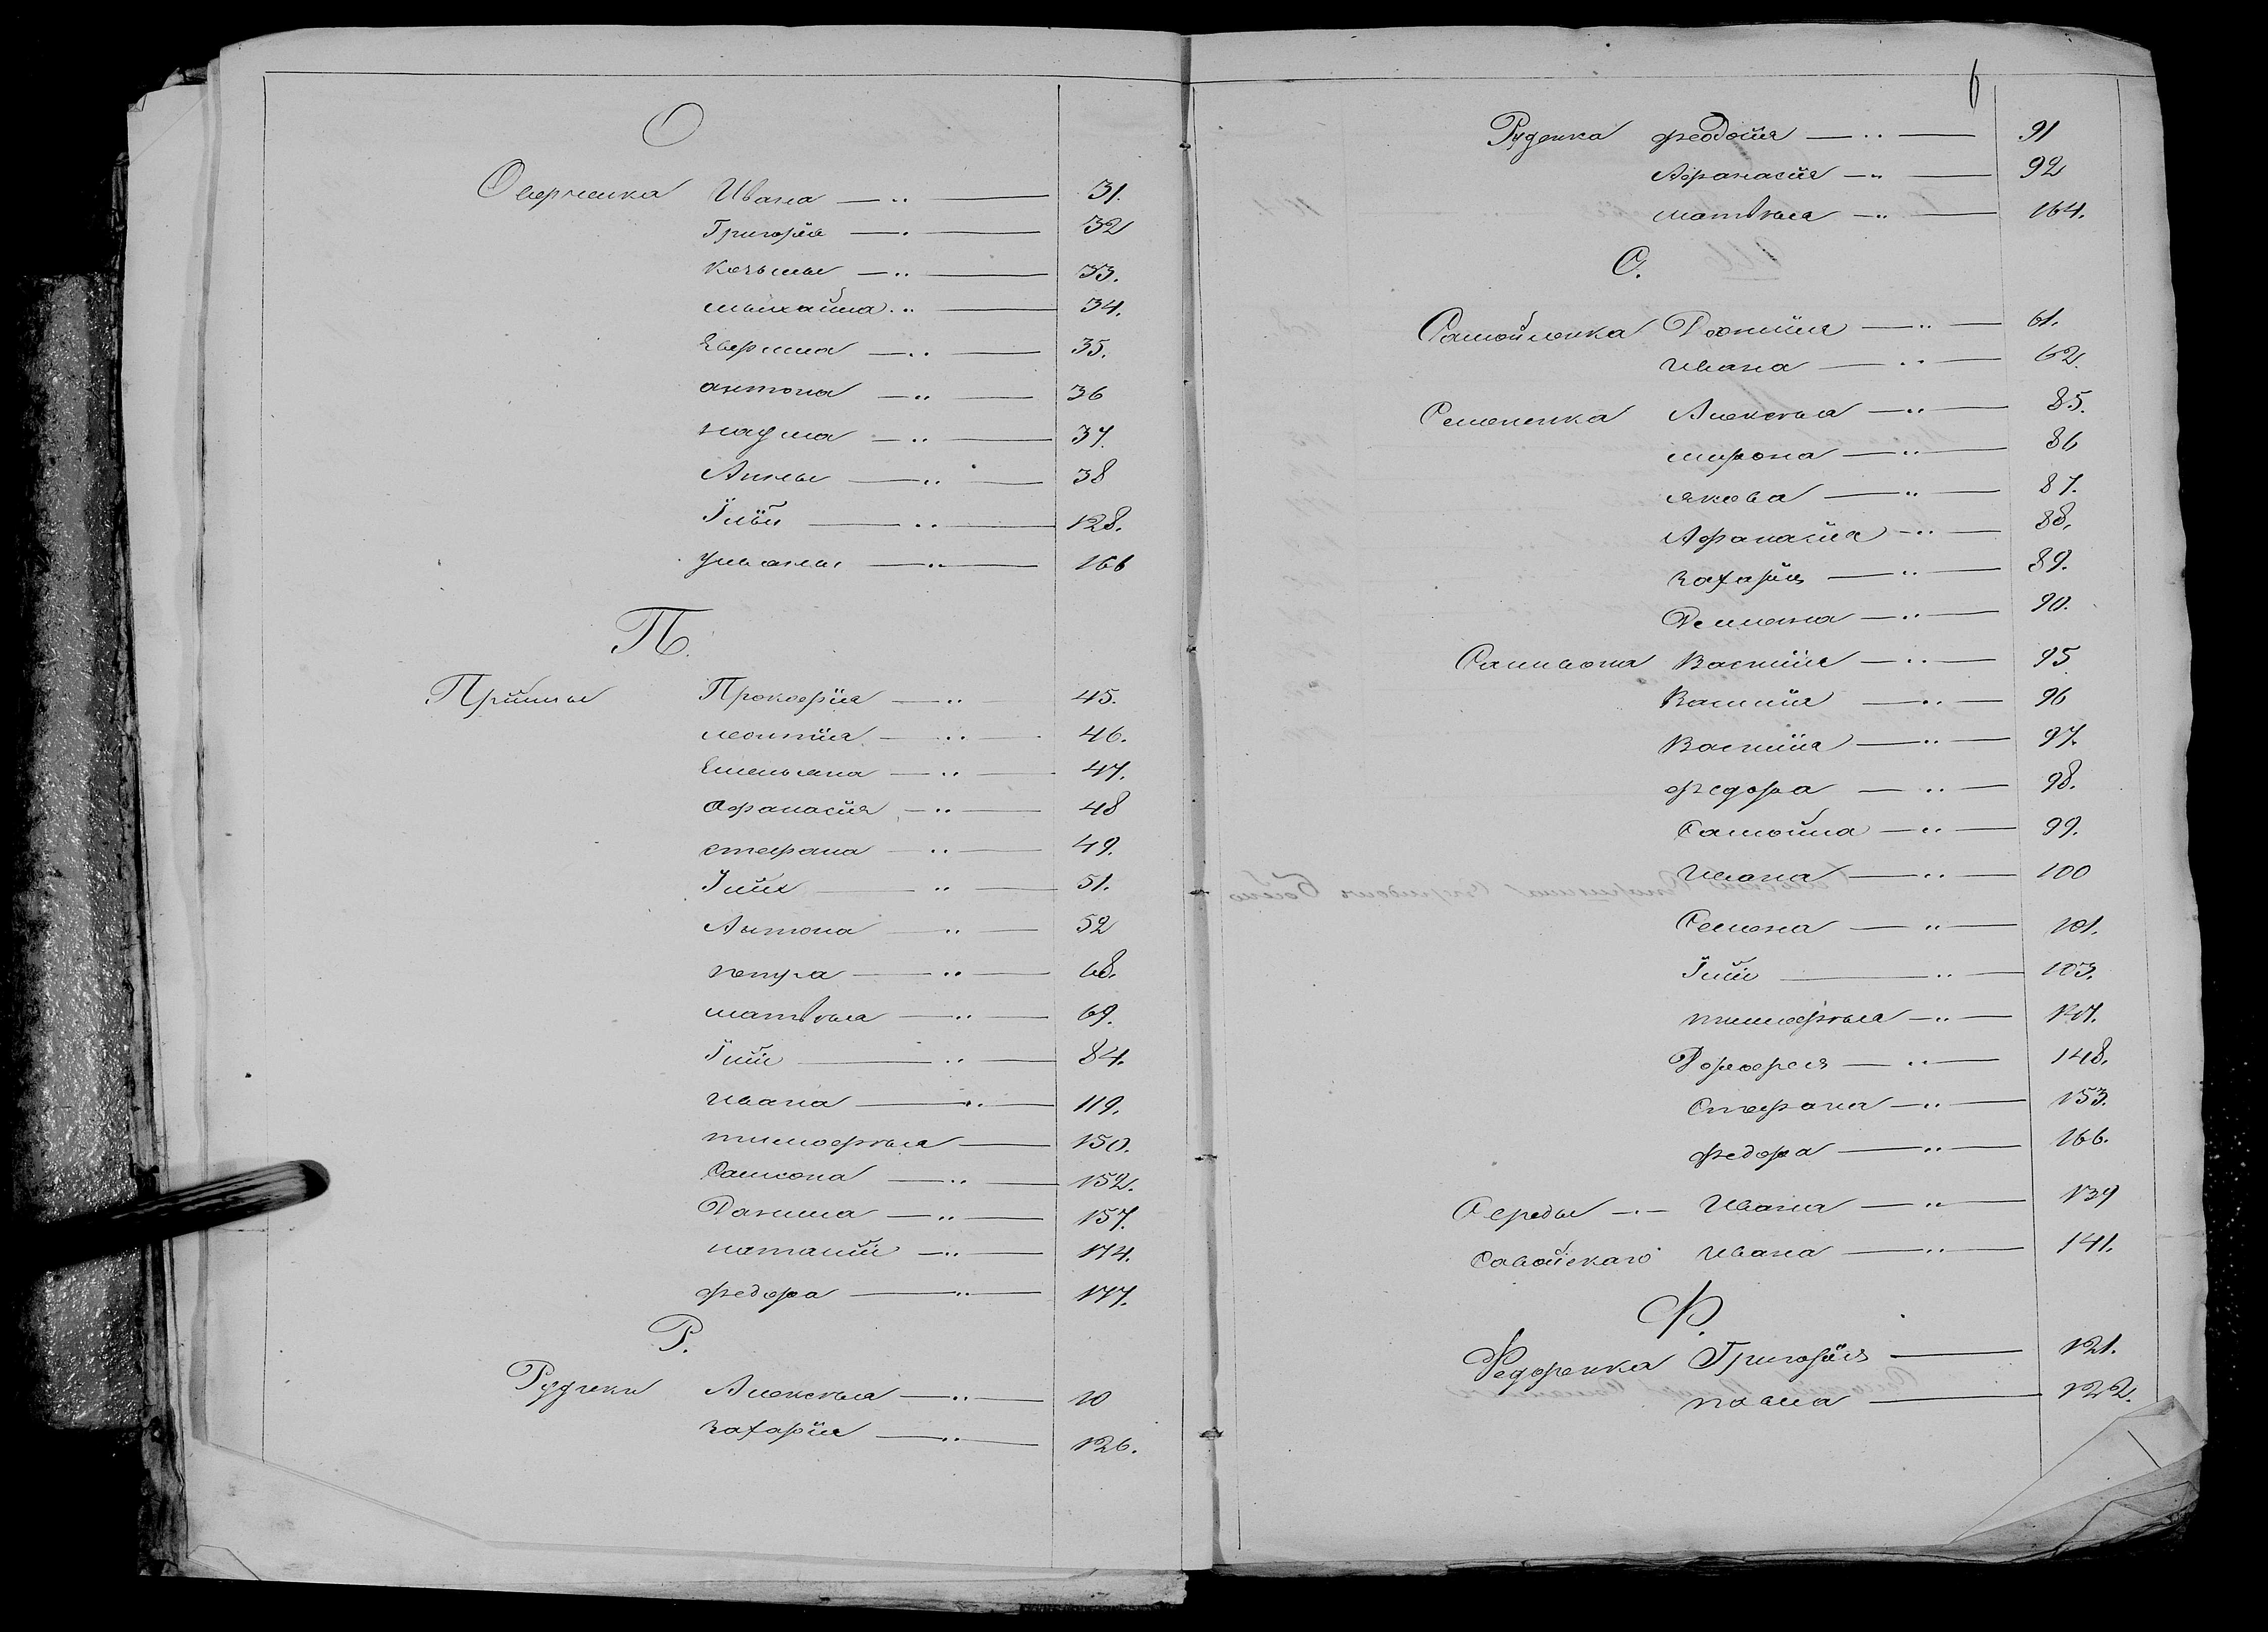 О
Оверченка Ивана — „ — 31.
Григорія — „ — 32
Козьмы — „ — 33.
михайла „ — 34.
— „ — 35.
антона — „ — 36
наума — „ — 37.
Анны — „ — 38
Ільи — „ — 128.
Ульяны — „ — 166
П.
Прокофія — „ 45.
леонтія — „ — 46.
Емельяна — „ — 47.
Афанасія — „ — 48
стефана — „ — 49.
51.
Антона — „ — 52
петра — „ — 68.
матвѣя — „ — 69.
Іліи — „ — 84.
ивана — „ — 119.
тимофѣя — 150.
Самсона — „ — 152.
Данила — „ — 157.
наталіи — „ — 174.
федора — „ — 177.
Р.
Алексѣя — „ — 10
захарія — „ — 126.
6
Руденка феодосія — „ — 91
Афанасія — „ — 92
матвѣя — „ — 164.
С.
Самойленка — „ — 61.
ивана — „ — 62.
Семененка Алексѣя — „ — 85.
мирона — „ — 86
якова — „ — 87.
Афанасія — „ — 88.
захарія — „ — 89.
90.
Василія — „ — 95
Василія — „ — 96
Василія — „ — 97.
федора — „ — 98.
Самойла — „ — 99.
Ивана — „ — 100
Семена — „ — 101.
Іліи — „ — 103.
тимофѣя — „ —
Дорофея — „ — 148.
Стефана — „ — 153.
федора — „ — 166.
Середы — „ — Ивана — „ — 139
Савойскаго Ивана — „ — 141.
Ф.
Федоренка Григорія — 121.
павла — 122.